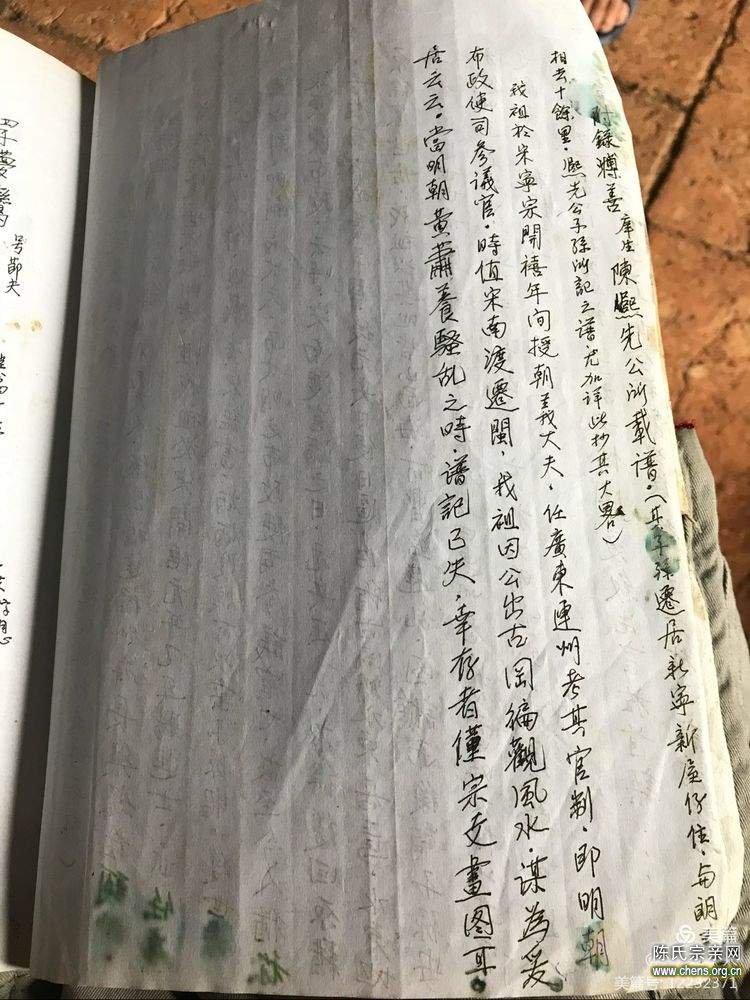 附錄博善庠生陳熙先公所載譜。(其子孫遷居新寧新屋仔住,与明
相去十餘里。熙先公子孫所記之譜尤加詳此抄其大畧)
我祖於宋寧宗開禧年间授朝議大夫,任廣東連州考其官制,即明朝
布政使司參議官。時值宋南渡遷閩,我祖因公出古岡徧觀風水。謀為爰
居云云。當明朝黃蕭養騷乱之時,譜記已失,幸存者僅宗支畫图耳
号節夫
美篇
美篇号:12232371
陈氏宗亲网
www.chens.org.cn